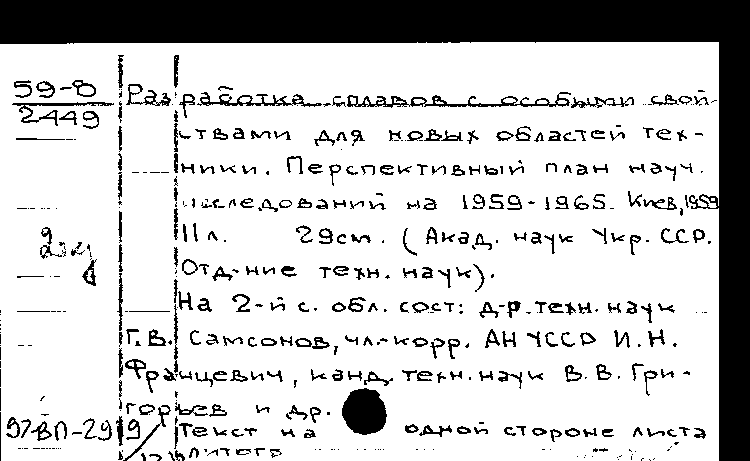 59-8
2449
Разработка сплавов с особыми свой-
ствами для новых областей тех-
ники. Перспективный план науч.
исследований на 1959-1965. Киев, 1959
11л. 29см. (Акад. наук Укр. ССР.
Отд-ние техн. наук).
На 2-й с. обл. сост: д-р. техн. наук
Г.В. Самсонов, чл.-корр. АН УССР И.Н.
Францевич, канд. техн. наук В.В. Гри-
горьев и др.
97-ВП-2919 Текст на одной стороне листа